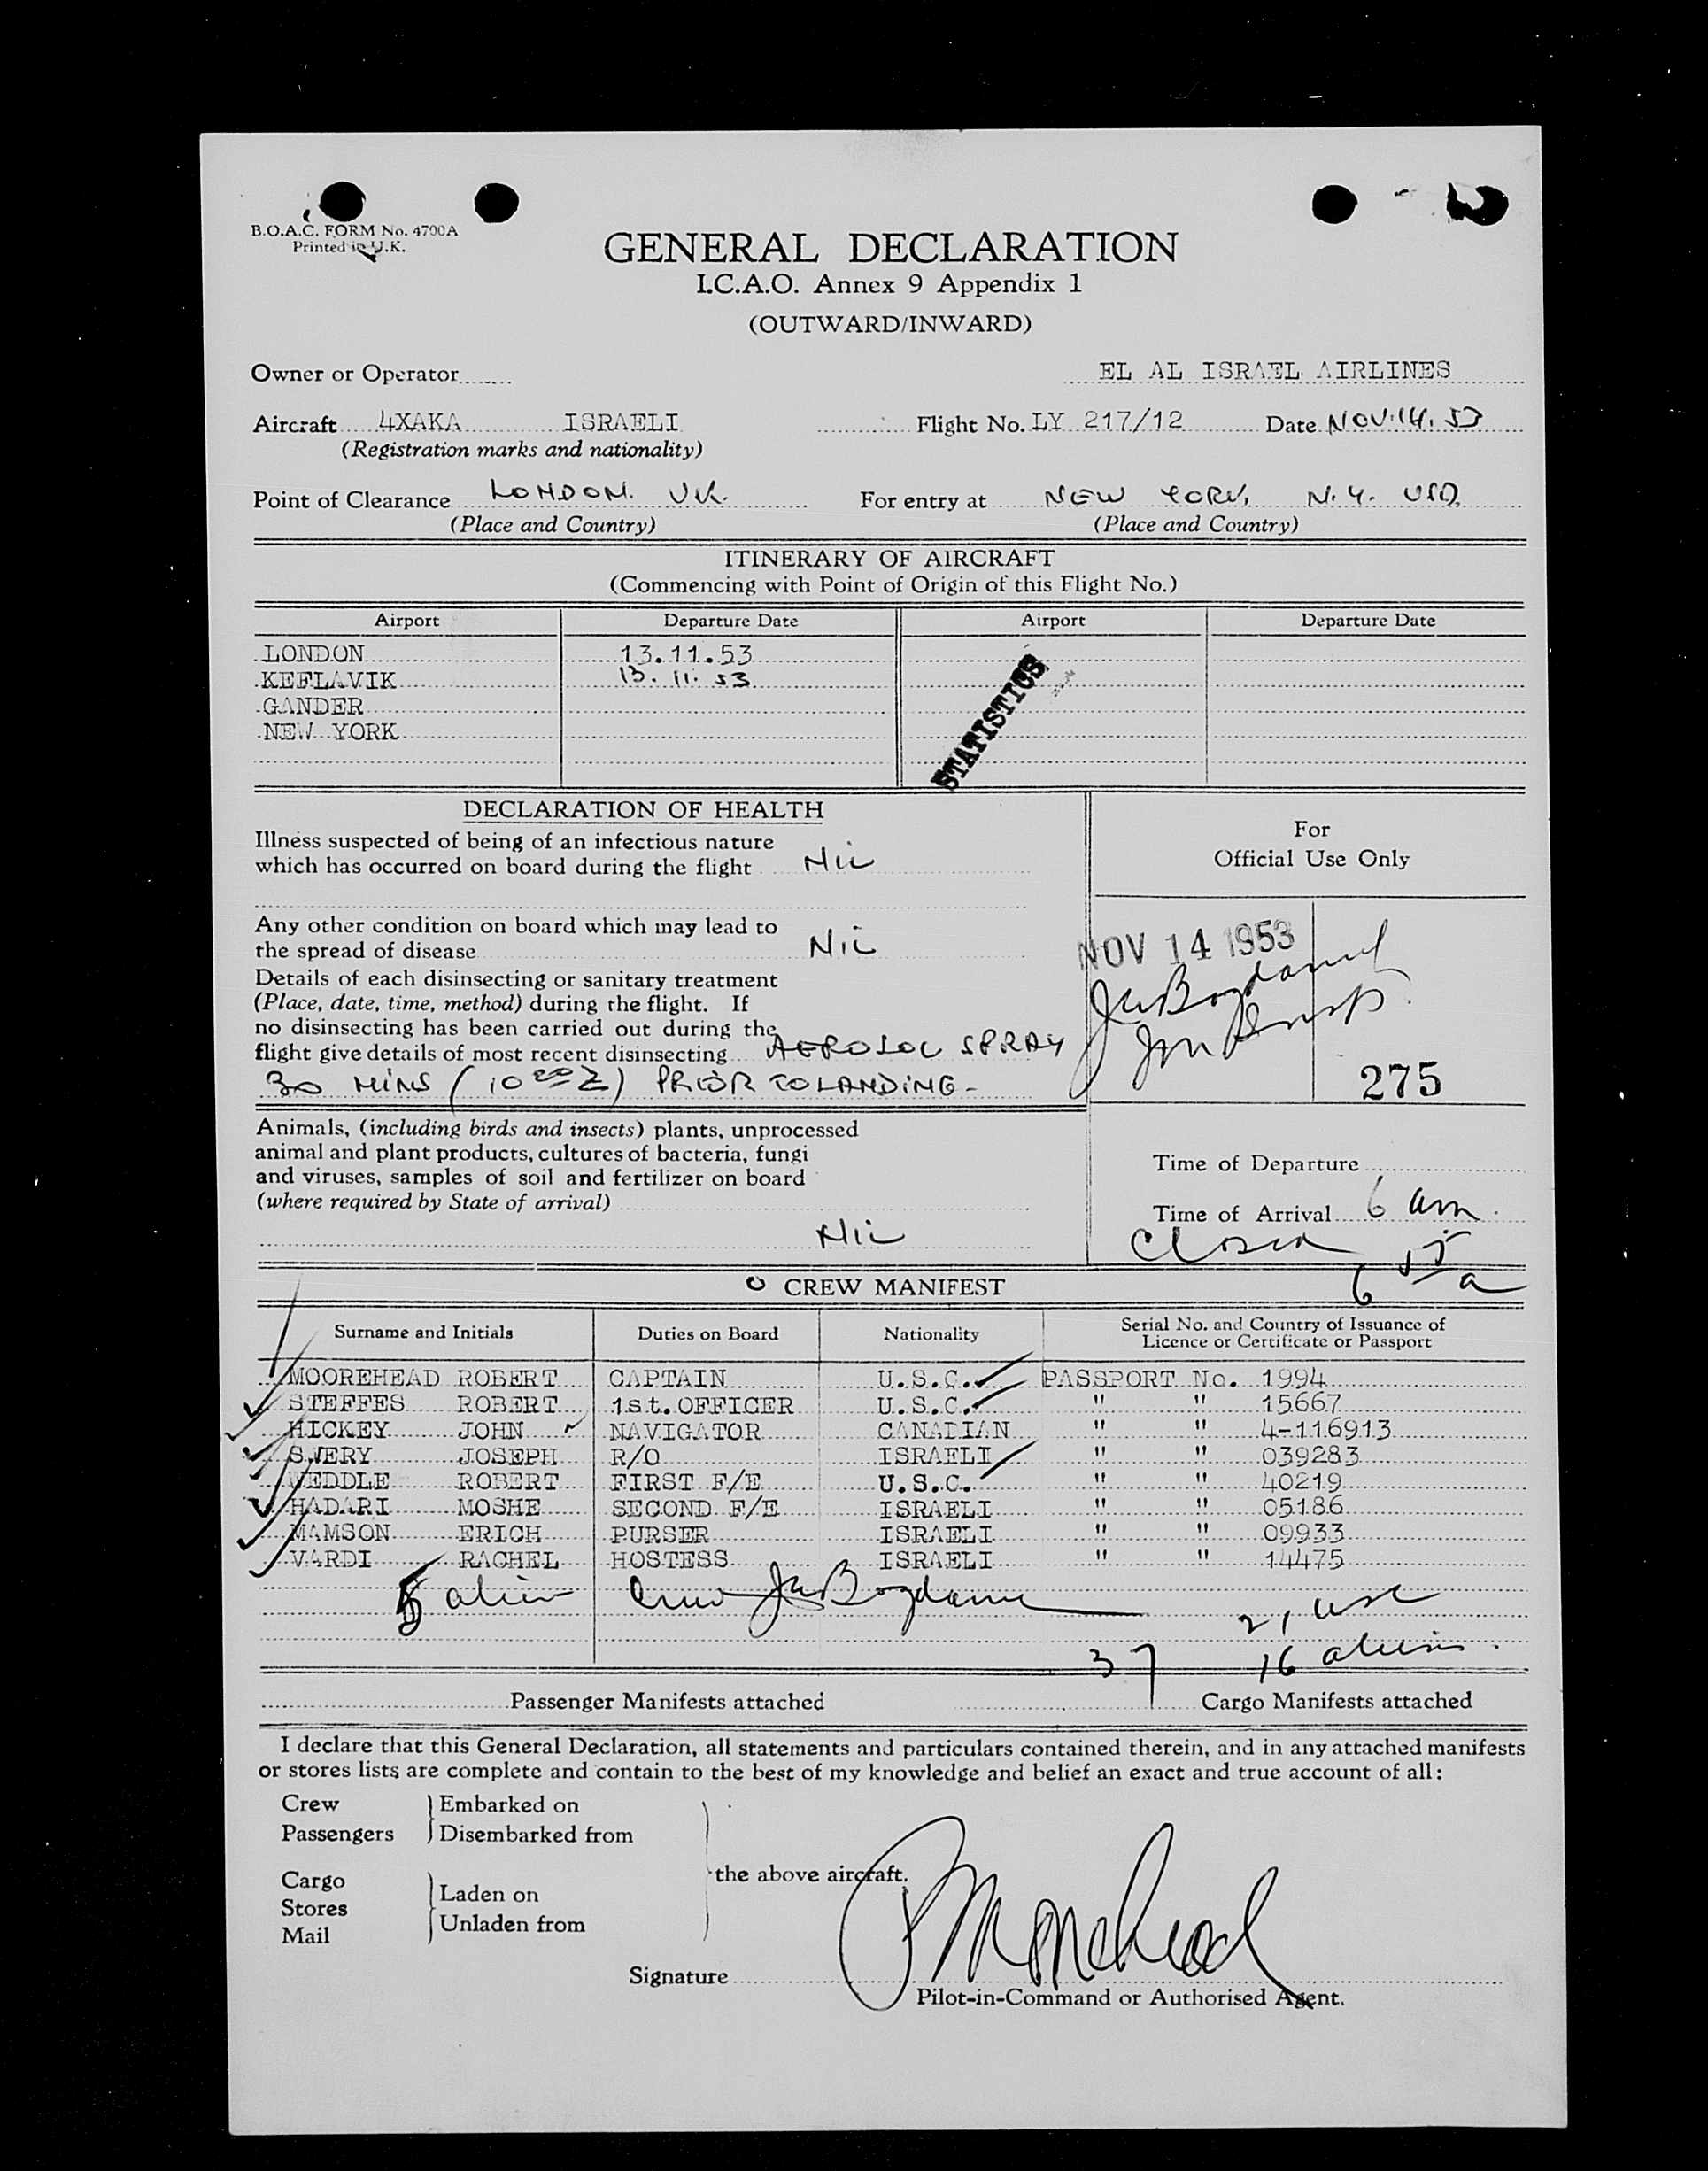 B.O.A.C. FORM No. 4700A
Printed in U.K.
GENERAL DECLARATION
I.C.A.O. Annex 9 Appendix 1
(OUTWARD/INWARD)
Owner or Operator EL AL ISRAEL AIRLINES
Aircraft 4XAKA ISRAELI Flight No. LY 217/12 Date NOV. 14. 53
(Registration marks and nationality)
Point of Clearance LONDON. UK. For entry at NEW YORK, N.Y. USA
(Place and Country) (Place and Country)
ITINERARY OF AIRCRAFT
(Commencing with Point of Origin of this Flight No.)
Airport Departure Date Airport Departure Date
LONDON 13.11.53
KEFLAVIK 13. 11. 53
GANDER
NEW YORK
STATISTICS
DECLARATION OF HEALTH
Illness suspected of being of an infectious nature
which has occurred on board during the flight Nil
Any other condition on board which may lead to
the spread of disease Nil
Details of each disinsecting or sanitary treatment
(Place, date, time, method) during the flight. If
no disinsecting has been carried out during the
flight give details of most recent disinsecting AEROSOL SPRAY
30 MINS (10 20 Z) PRIOR TO LANDING -
Animals, (including birds and insects) plants, unprocessed
animal and plant products, cultures of bacteria, fungi
and viruses, samples of soil and fertilizer on board
(where required by State of arrival)
Nil
For
Official Use Only
NOV 14 1953
275
Time of Departure
Time of Arrival 6 am.
Closed
6 15 a
CREW MANIFEST
Surname and Initials Duties on Board Nationality Serial No. and Country of Issuance of
Licence or Certificate or Passport
MOOREHEAD ROBERT CAPTAIN U.S.C. PASSPORT No. 1994
STEFFES ROBERT 1st. OFFICER U.S.C. " " 15667
HICKEY JOHN NAVIGATOR CANADIAN " " 4-116913
SWERY JOSEPH R/O ISRAELI " " 039283
WEDDLE ROBERT FIRST F/E U.S.C. " " 40219
HADARI MOSHE SECOND F/E ISRAELI " " 05186
MAMSON ERICH PURSER ISRAELI " " 09933
VARDI RACHEL HOSTESS ISRAELI " " 14475
5 alien Crew
21 usc
37 16 aliens.
Passenger Manifests attached Cargo Manifests attached
I declare that this General Declaration, all statements and particulars contained therein, and in any attached manifests
or stores lists are complete and contain to the best of my knowledge and belief an exact and true account of all:
Crew Embarked on
Passengers Disembarked from
the above aircraft.
Cargo
Stores Laden on
Mail Unladen from
Signature
Pilot-in-Command or Authorised Agent.